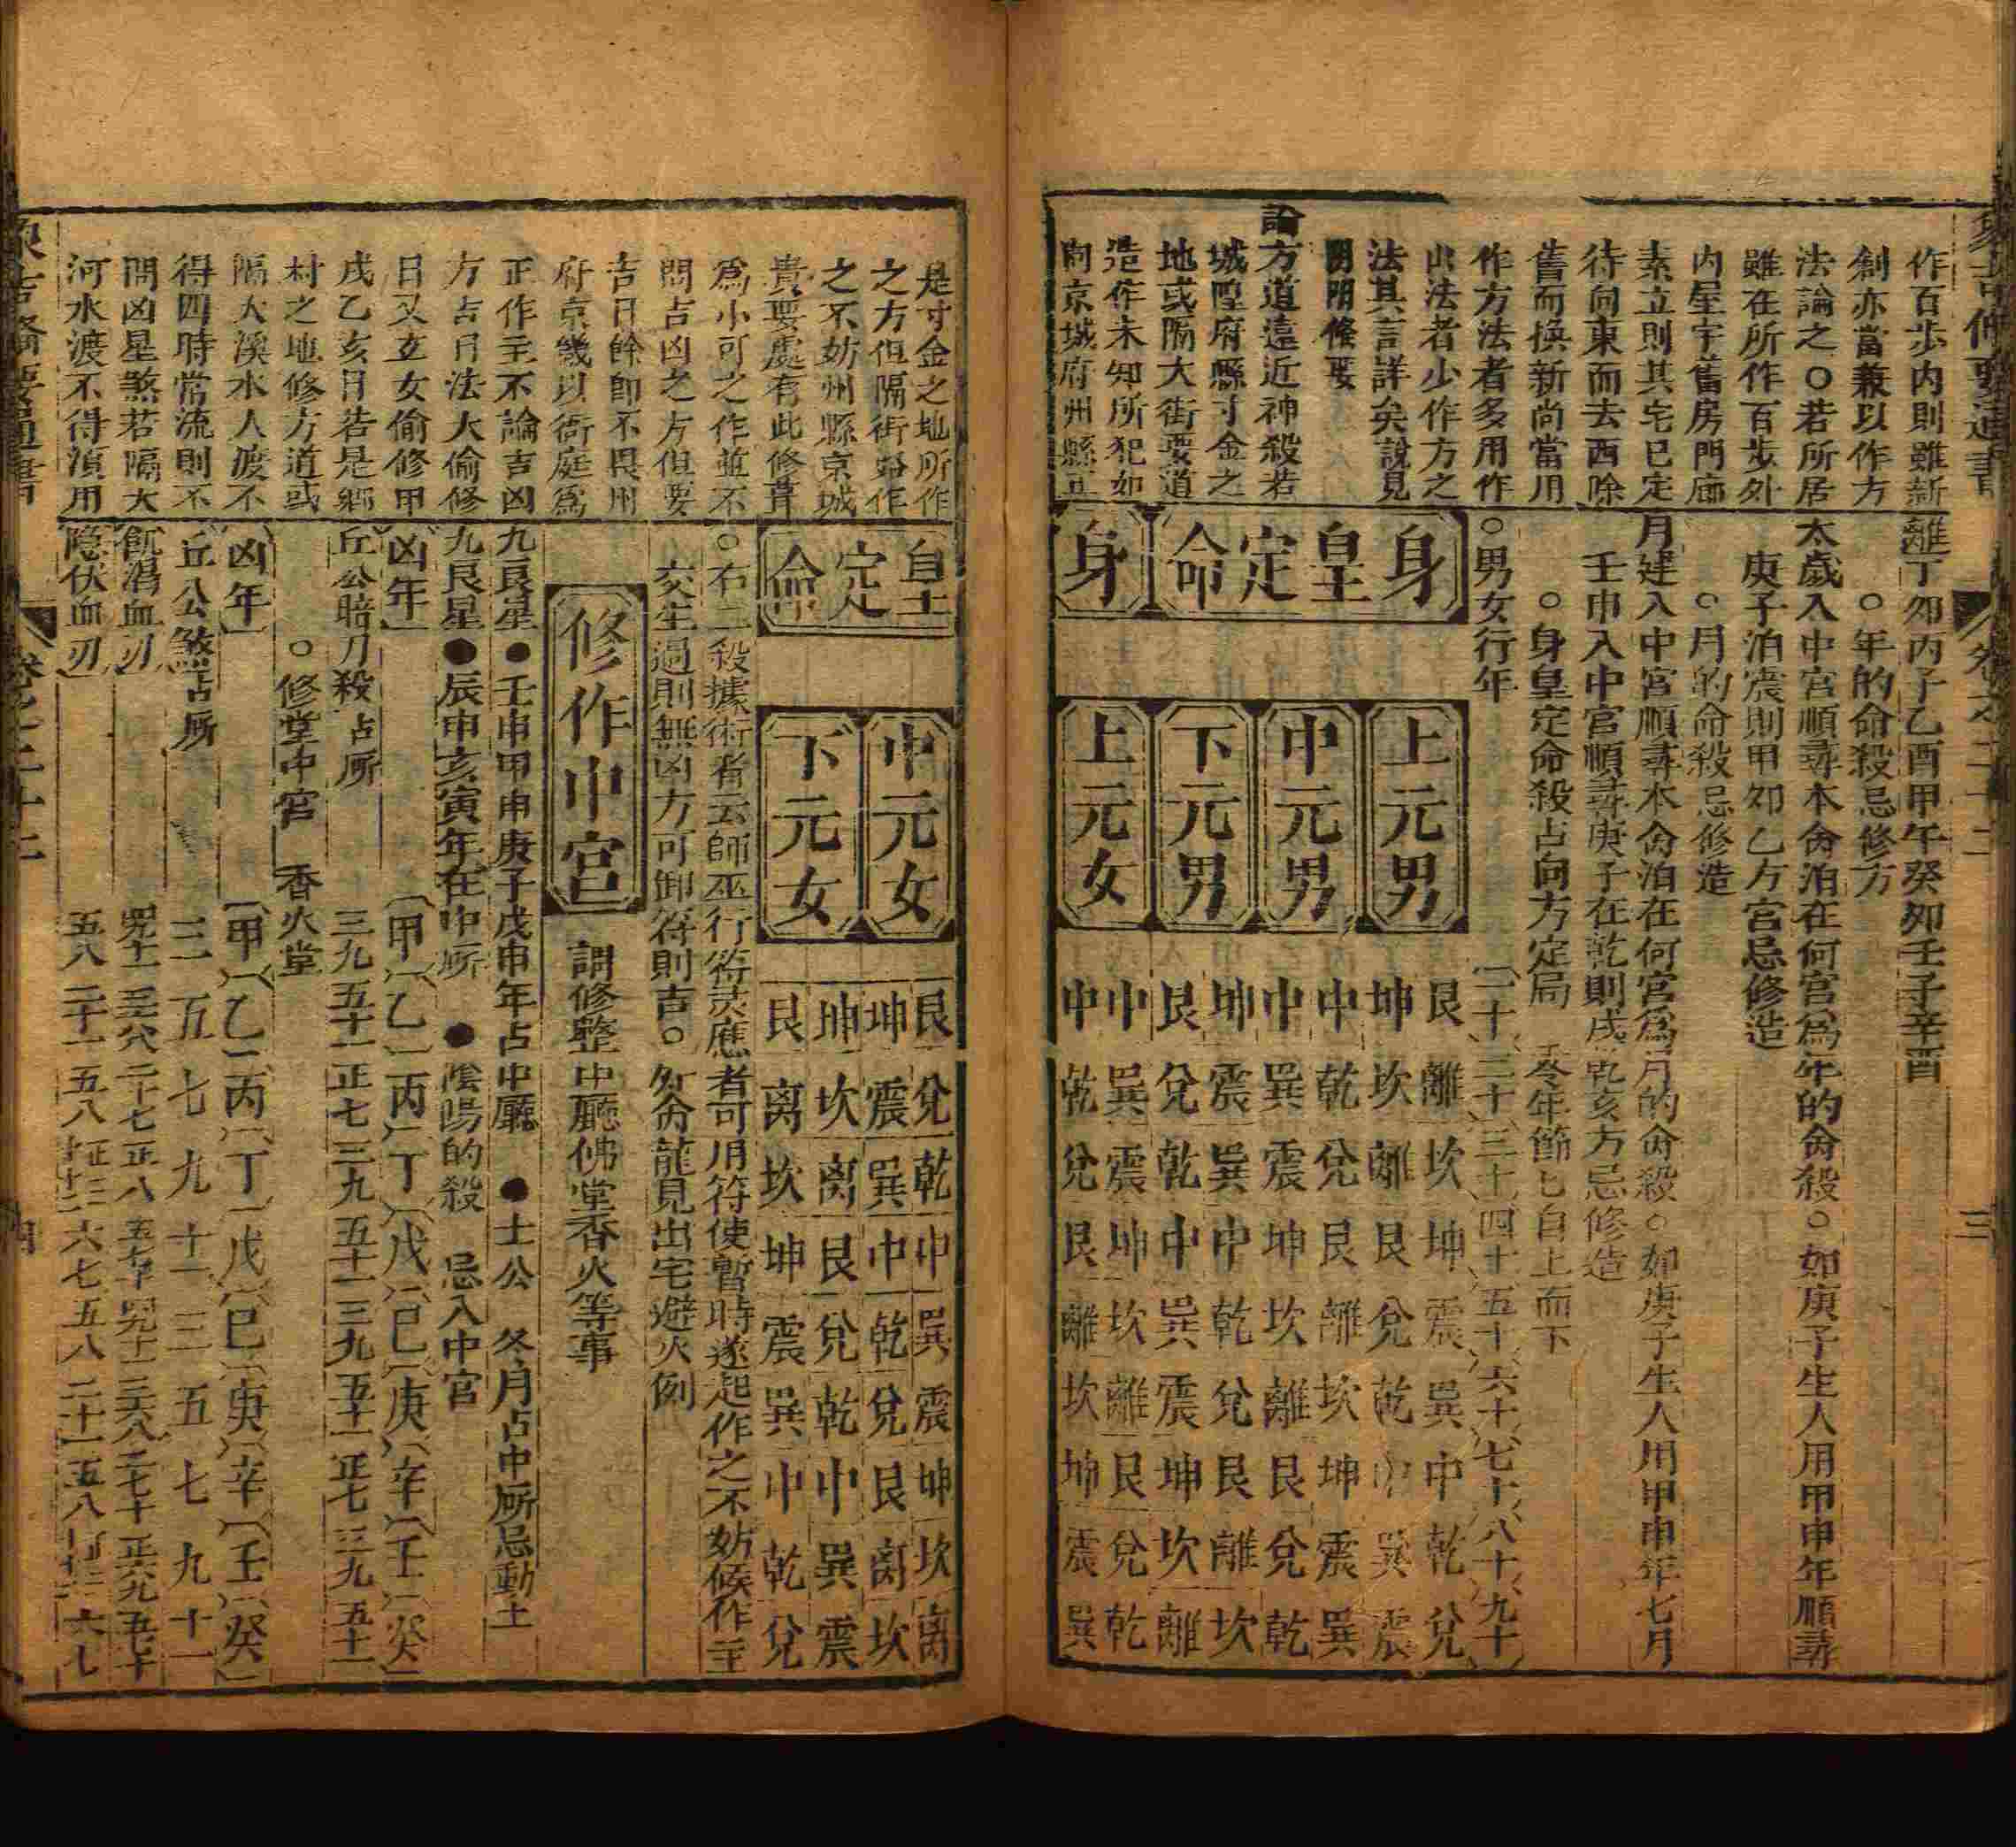 象吉備要通書 卷之二十二 三
作百步内則雖新
創亦當兼以作方
法論之○若所居
雖在所作百步外
内屋宇舊房門廊
素立則其宅已定
待向東而去西除
舊而換新尚當用
作方法者多用作
山法者少作方之
法其言詳矣說見
陰陽條要
論方道遠近神殺若
城隍府縣寸金之
地或隔大街要道
造作未知所犯如
向京城府州縣正
離丁卯丙子乙酉甲午癸卯壬子辛酉
○年的命殺忌修方
太歲入中宫順尋本命泊在何宫為年的命殺○如庚子生人用甲申年順尋
庚子泊震則甲卯乙方宫忌修造
○月的命殺忌修造
月建入中宮順尋本命泊在何宫為月的命殺○如庚子生人用甲申年七月
壬申入中宫順尋庚子在乾則戌乾亥方忌修造
○身皇定命殺占向方定局 逐年節七自上而下
○男女行年 一十 二十 三十 四十 五十 六十 七十 八十 九十
身皇定命
上元男 艮離坎坤震巽中乾兌
坤坎離艮兌乾中巽震
中元男 中乾兌艮離坎坤震巽
中巽震坤坎離艮兌乾
下元男 坤震巽中乾兌艮離坎
艮兌乾中巽震坤坎離
身
上元女 中巽震坤坎離艮兌乾
中乾兌艮離坎坤震巽
是寸金之地所作
之方但隔街路作
之不妨州縣京城
貴要處有此修葺
為小可之作並不
問吉凶之方但要
吉日餘即不畏州
府京畿以衙庭為
正作主不論吉凶
方吉日法大偷修
日又立女偷修甲
戌乙亥日若是鄉
村之地修方道或
隔大溪水人渡不
得四時常流則不
問凶星煞若隔大
河水渡不得濵用
皇定命
中元女 艮兌乾中巽震坤坎离
坤震巽中乾兌艮离坎
下元女 坤坎离艮兌乾中巽震
艮离坎坤震巽中乾兌
○右二殺據術者云師巫行符灵應者可用符使暫時遂起作之不妨候作主
交生過則無凶方可卸符則吉。外命龍見出宅避火例
修作中宫 謂修整中廳佛堂香火等事
九良星●壬申甲申庚子戊申年占中廳 ●土公 冬月占中厛忌動土
九艮星●辰申亥寅年在中厛 ●陰陽的殺 忌入中宫
凶年 甲 乙 丙 丁 戊 巳 庚 辛 壬 癸
丘公暗刀殺占厛 三九 五十一 正七 三九 五十一 三九 五十一 正七 三九 五十一
○修堂中宫 香火堂
凶年 甲 乙 丙 丁 戊 巳 庚 辛 壬 癸
丘公煞占厛 三一 五 七 九 十一 三一 五 七 九 十一
飢渴血刃
隐伏血刃
象吉備要通書 卷之二十二 四